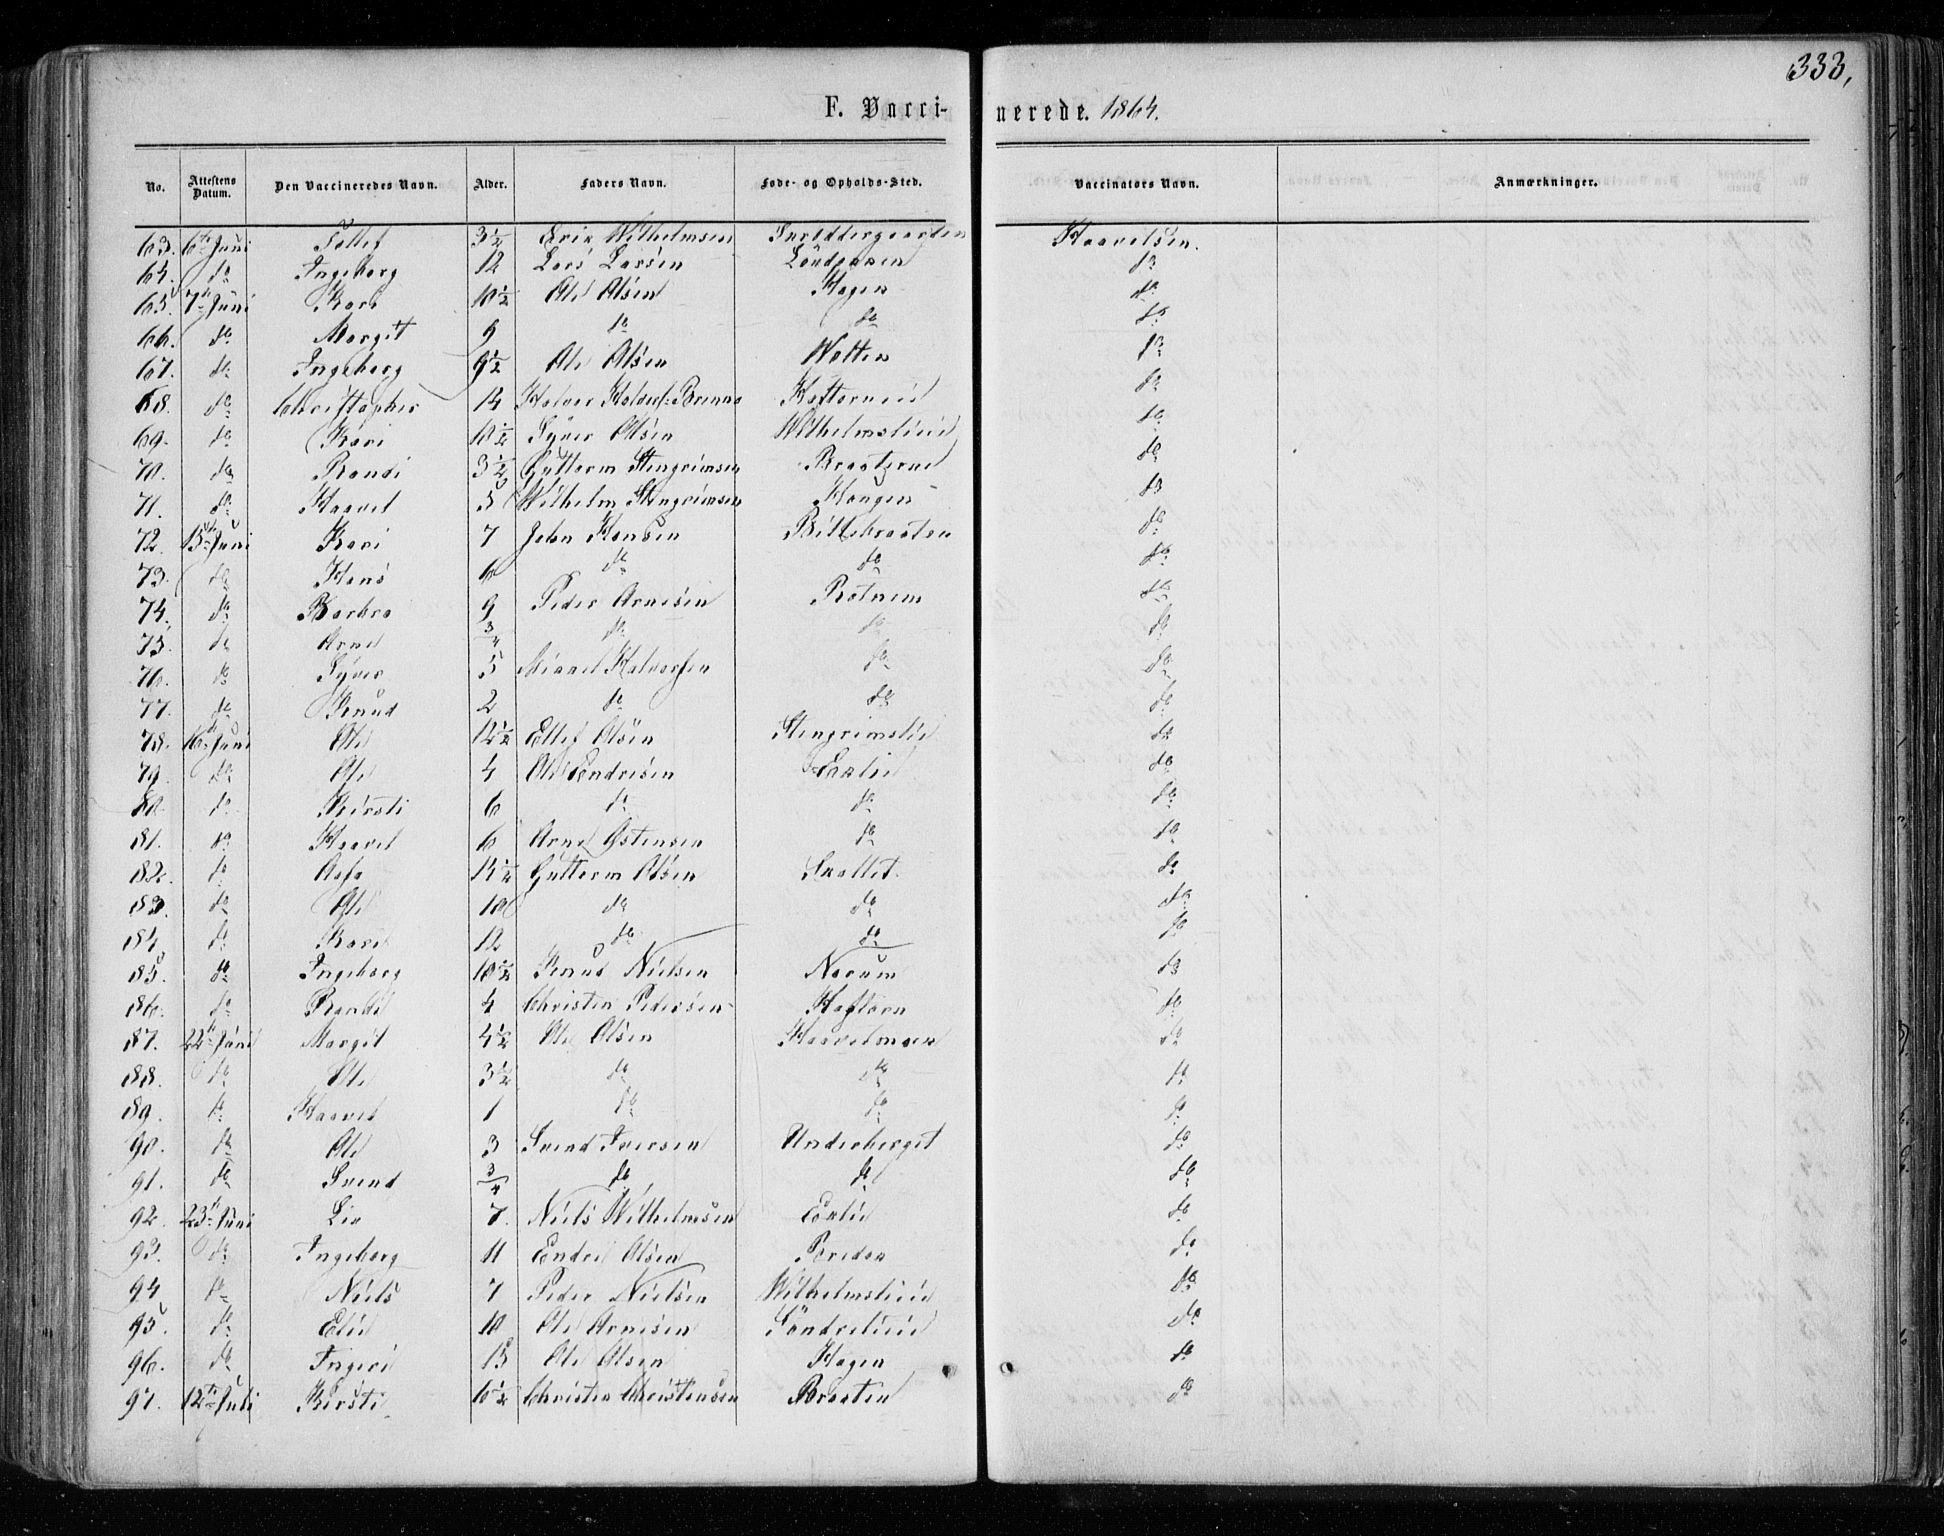 333,
F. Vacci- nerede. 1864.
No. Attestens Datum. Den Vaccineredes Navn. Alder. Faders Navn. Føde- og Opholds-Sted. Vaccinators Navn. Anmærkninger.
63. 6te Juni Tollef 3½ Erik Wilhelmsen Haavelsen.
64. do Ingeborg 12 Lars Larsen do
65. 7de Juni Kari 10½ Ole Olsen Hagen do
66. do Margit 9 do do do
67. do Ingeborg 9½ Ole Olsen do
68. do Christopher 14 do
69. do Kari 10½ Syver Olsen Wilhelmslien do
70. do Randi 3½ Guttorm Stengrimsen Braaterne do
71. do Haavel 5 Wilhelm Stengrimsen Haugen do
72. 15de Juni Kari 7 John Hansen Billebraaten do
73. do Hans 6 do do do
74. do Barbro 9 Peder Arnesen Rotneim do
75. do Arne ¾ do do do
76. do Syver 5 Mikkel Halvorsen do do
77. do Knud 2 do do do
78. 16de Juni Ole 12½ Ellef Olsen Stengrimslie do
79. do Ole 4 Ole Endresen Eeklie do
80. do Kirsti 6 do do do
81. do Haavel 6 Arne Østensen do do
82. do Aase Guttorm Olsen do
83. do Ole 10 do do do
84. do Kari 12 do do do
85. do Ingeborg 10½ Knud Nielsen Norum do
86. do Randi 4 Christen Pedersen Haftorn do
87. 22de Juni Margit 4½ Ole Olsen Haavelmoen do
88. do Ole 3½ do do do
89. do Haavel 1 do do do
90. do Ole 3 Svend Iversen Underberget do
91. do Svend ¾ do do do
92. 23de Juni Liv 7. Niels Wilhelmsen Eeklie do
93. do Ingeborg 11 Endre Olsen do
94 do Niels 7 Peder Nielsen Wilhelmslien do
95. do Elie 10 Ole Arnesen Søndrelien do
96. do Ingeri 13 Ole Olsen Hagen do
97. 12te Juli Kirsti 6½ Christen Christensen Braaten do